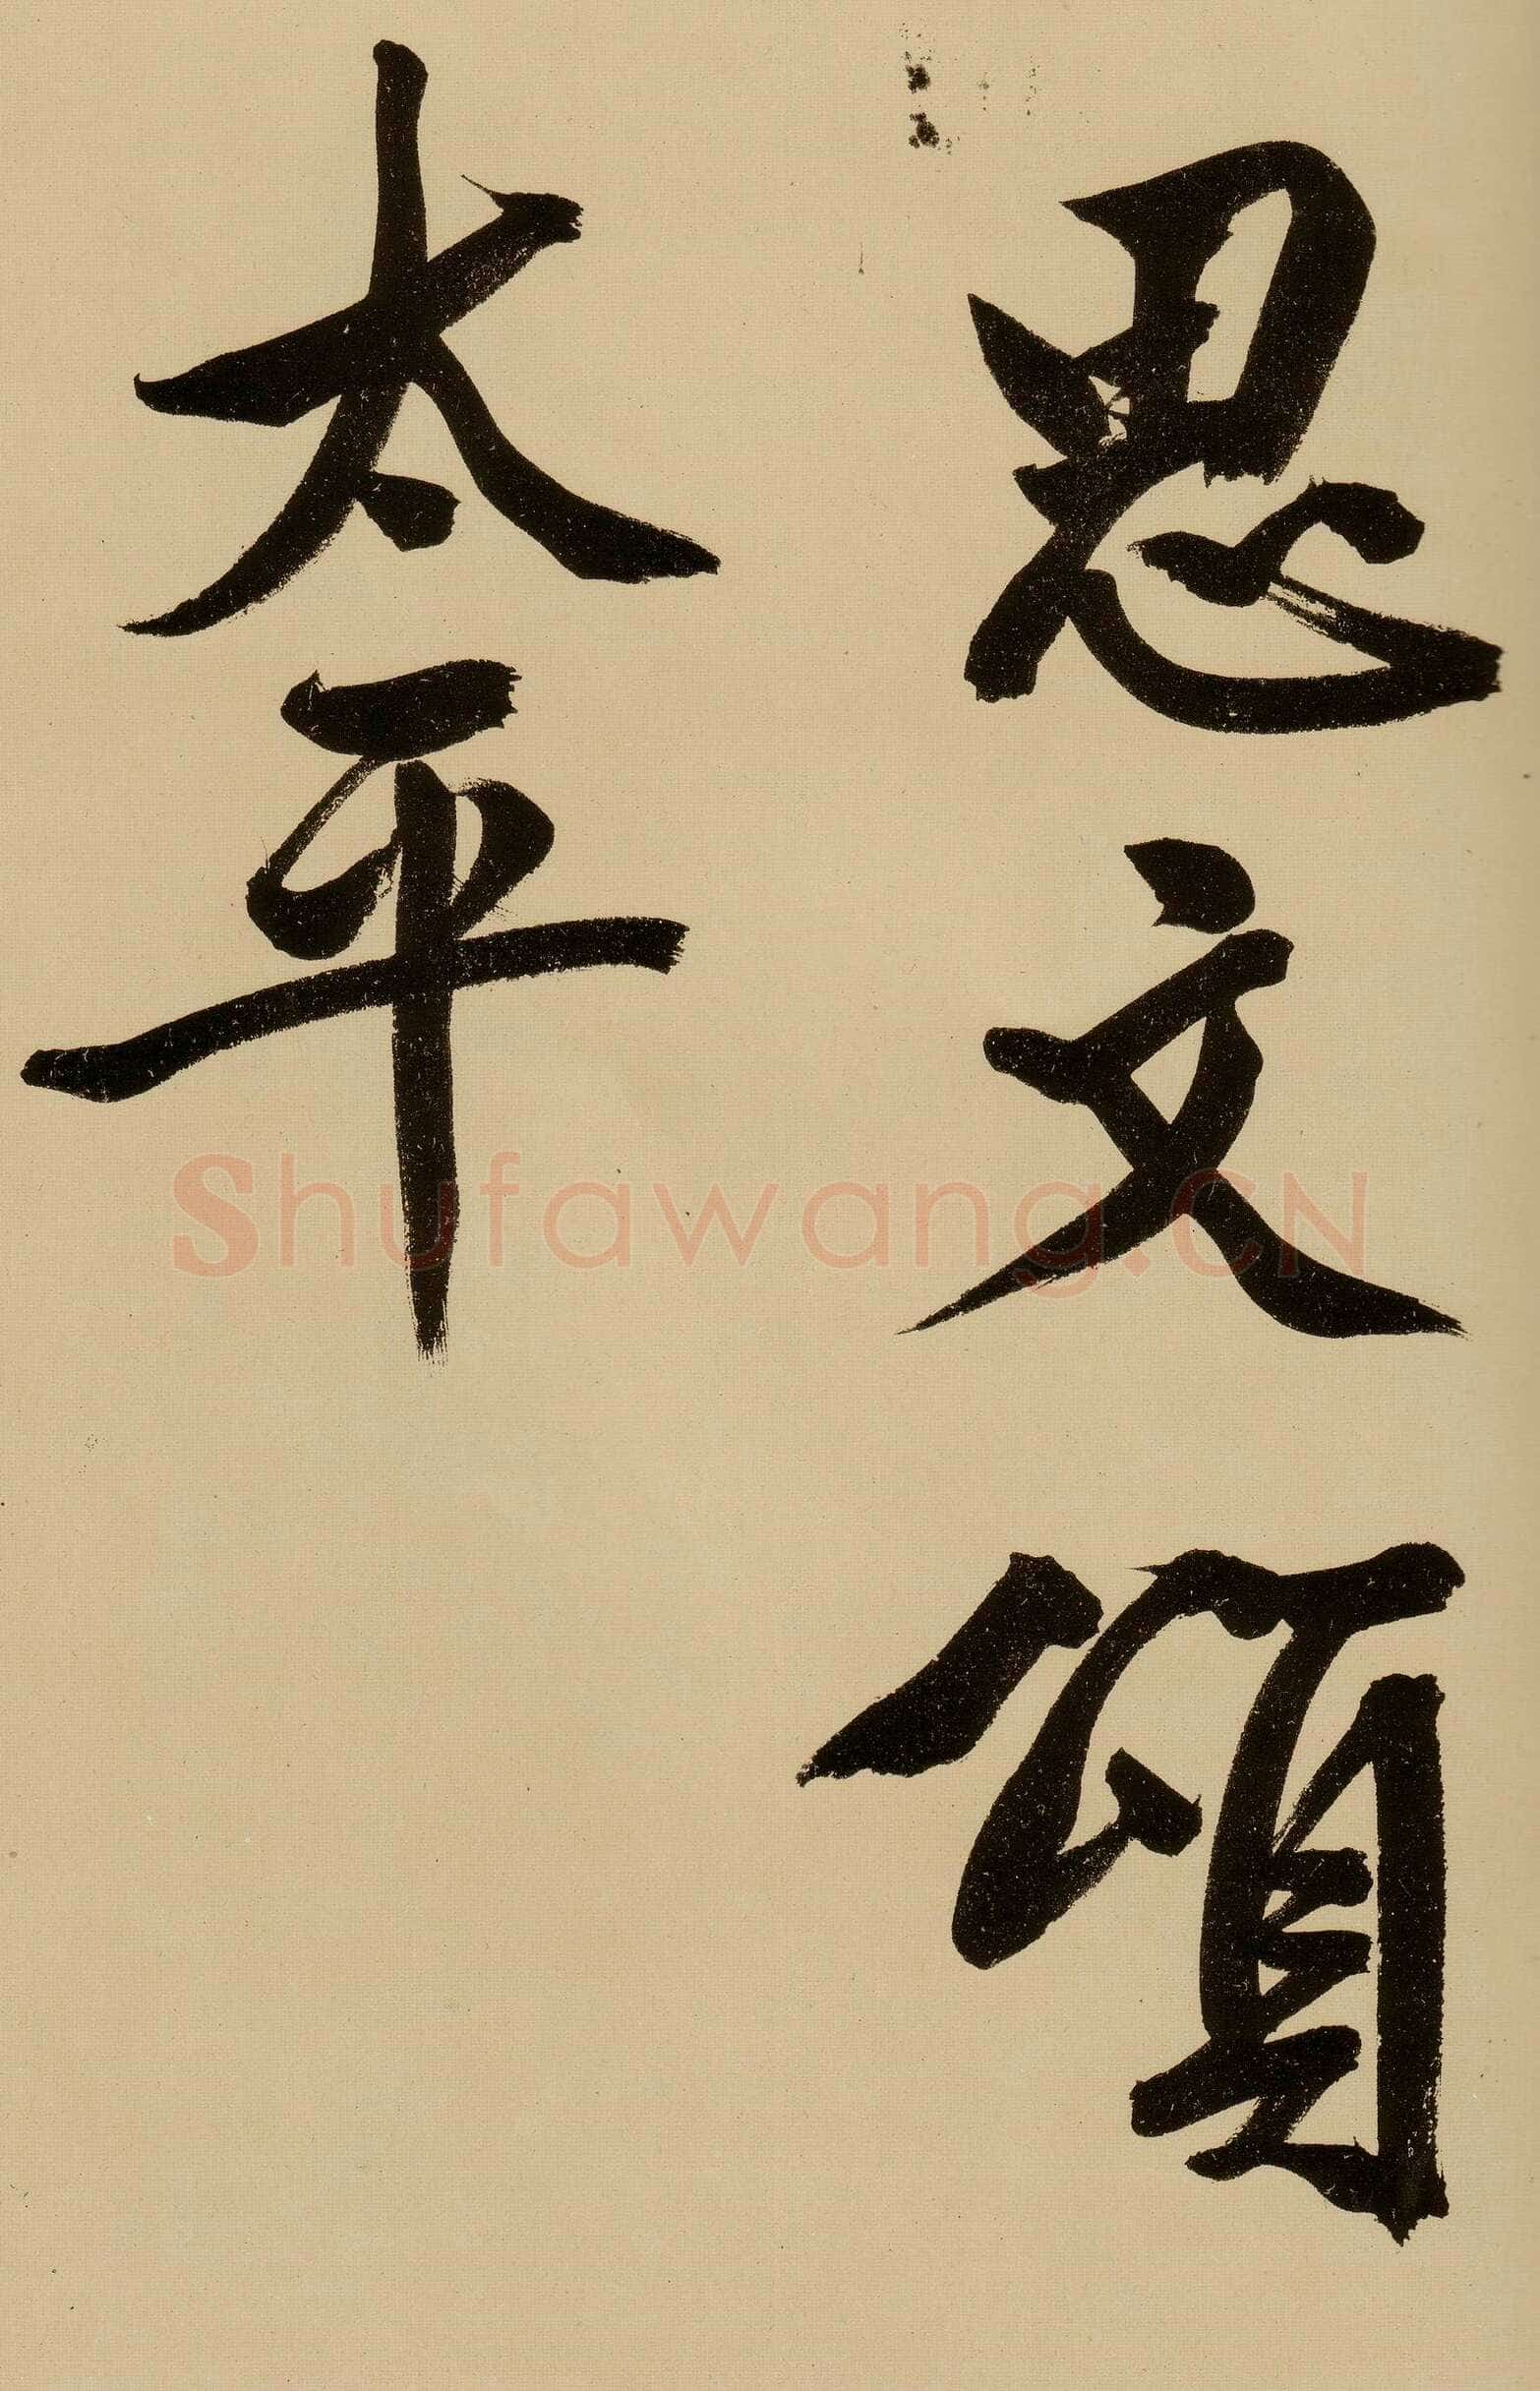 思文頌
太平
Shufawang.CN